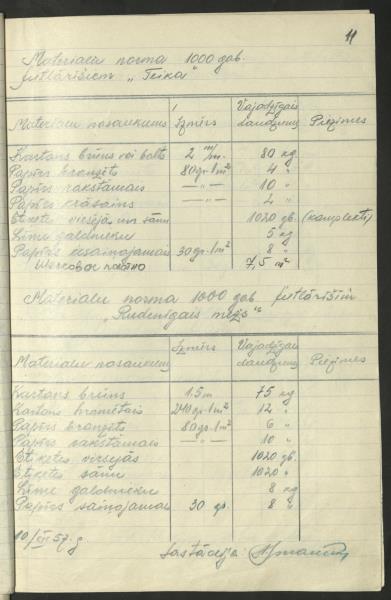 11
Materialu norma 1000 gab.
futlārīšiem „Teika"
Materialu nosaukums Izmērs Vajadzīgais daudzums Piezīmes
Kartons brūns vai balts 2 m/m. 80 kg
Papīrs bronzēts 80 gr. 1 m² 4 "
Papīrs rakstāmais —"— 10 "
Papīrs krāsains —"— 2 "
Etiķetes virsējā un sānu 1020 gb. (komplekti)
Līme galdnieku 5 kg
Papīrs saiņojamais 30 gr. 1 m² 8 "
Шелковое полотно 7,5 m²
Materialu norma 1000 gab. futlārīšiem
„Rudenīgais mežs"
Materialu nosaukums Izmērs Vajadzīgais daudzums Piezīmes
Kartons brūns 1.5 m 75 kg
Kartons hromētais 240 gr. 1 m² 12 "
Papīrs bronzēts 80 gr. 1 m² 6 "
Papīrs rakstāmais —"— 10 "
Etiķetes virsējās 1020 gb.
Etiķetes sānu 1020 "
Līme galdnieku 8 kg
Papīrs saiņojamais 30 gr. 8 "
57. g
Sastādīja